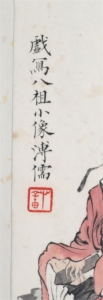 戲寫八祖小像溥儒